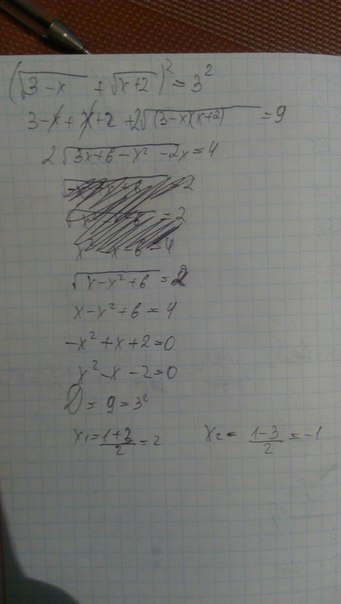 (√3-x + √x+2)² = 3²
3-x+x+2+2√(3-x)(x+2) = 9
2√3x+6-x²-2x = 4
= 2
√x-x²+6 = 2
x-x²+6 = 4
-x²+x+2=0
x²-x-2=0
D = 9 = 3²
x₁ = 1+3/2 = 2 x₂ = 1-3/2 = -1